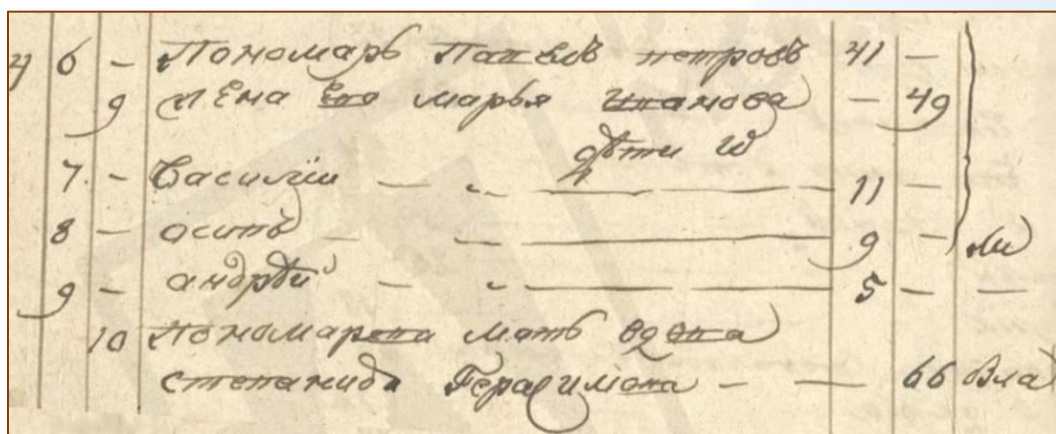 4 6 — Пономарь Павелъ петровъ 41 —
9 жена Его марья Иванова — 49
дѣти ихъ
7 — Василiй — " — 11 —
8 — осипъ — " — 9 —
9 — андрѣй — " — 5 — —
10 Пономарева мать вдова
степанида Герасимова — — 66 Вда